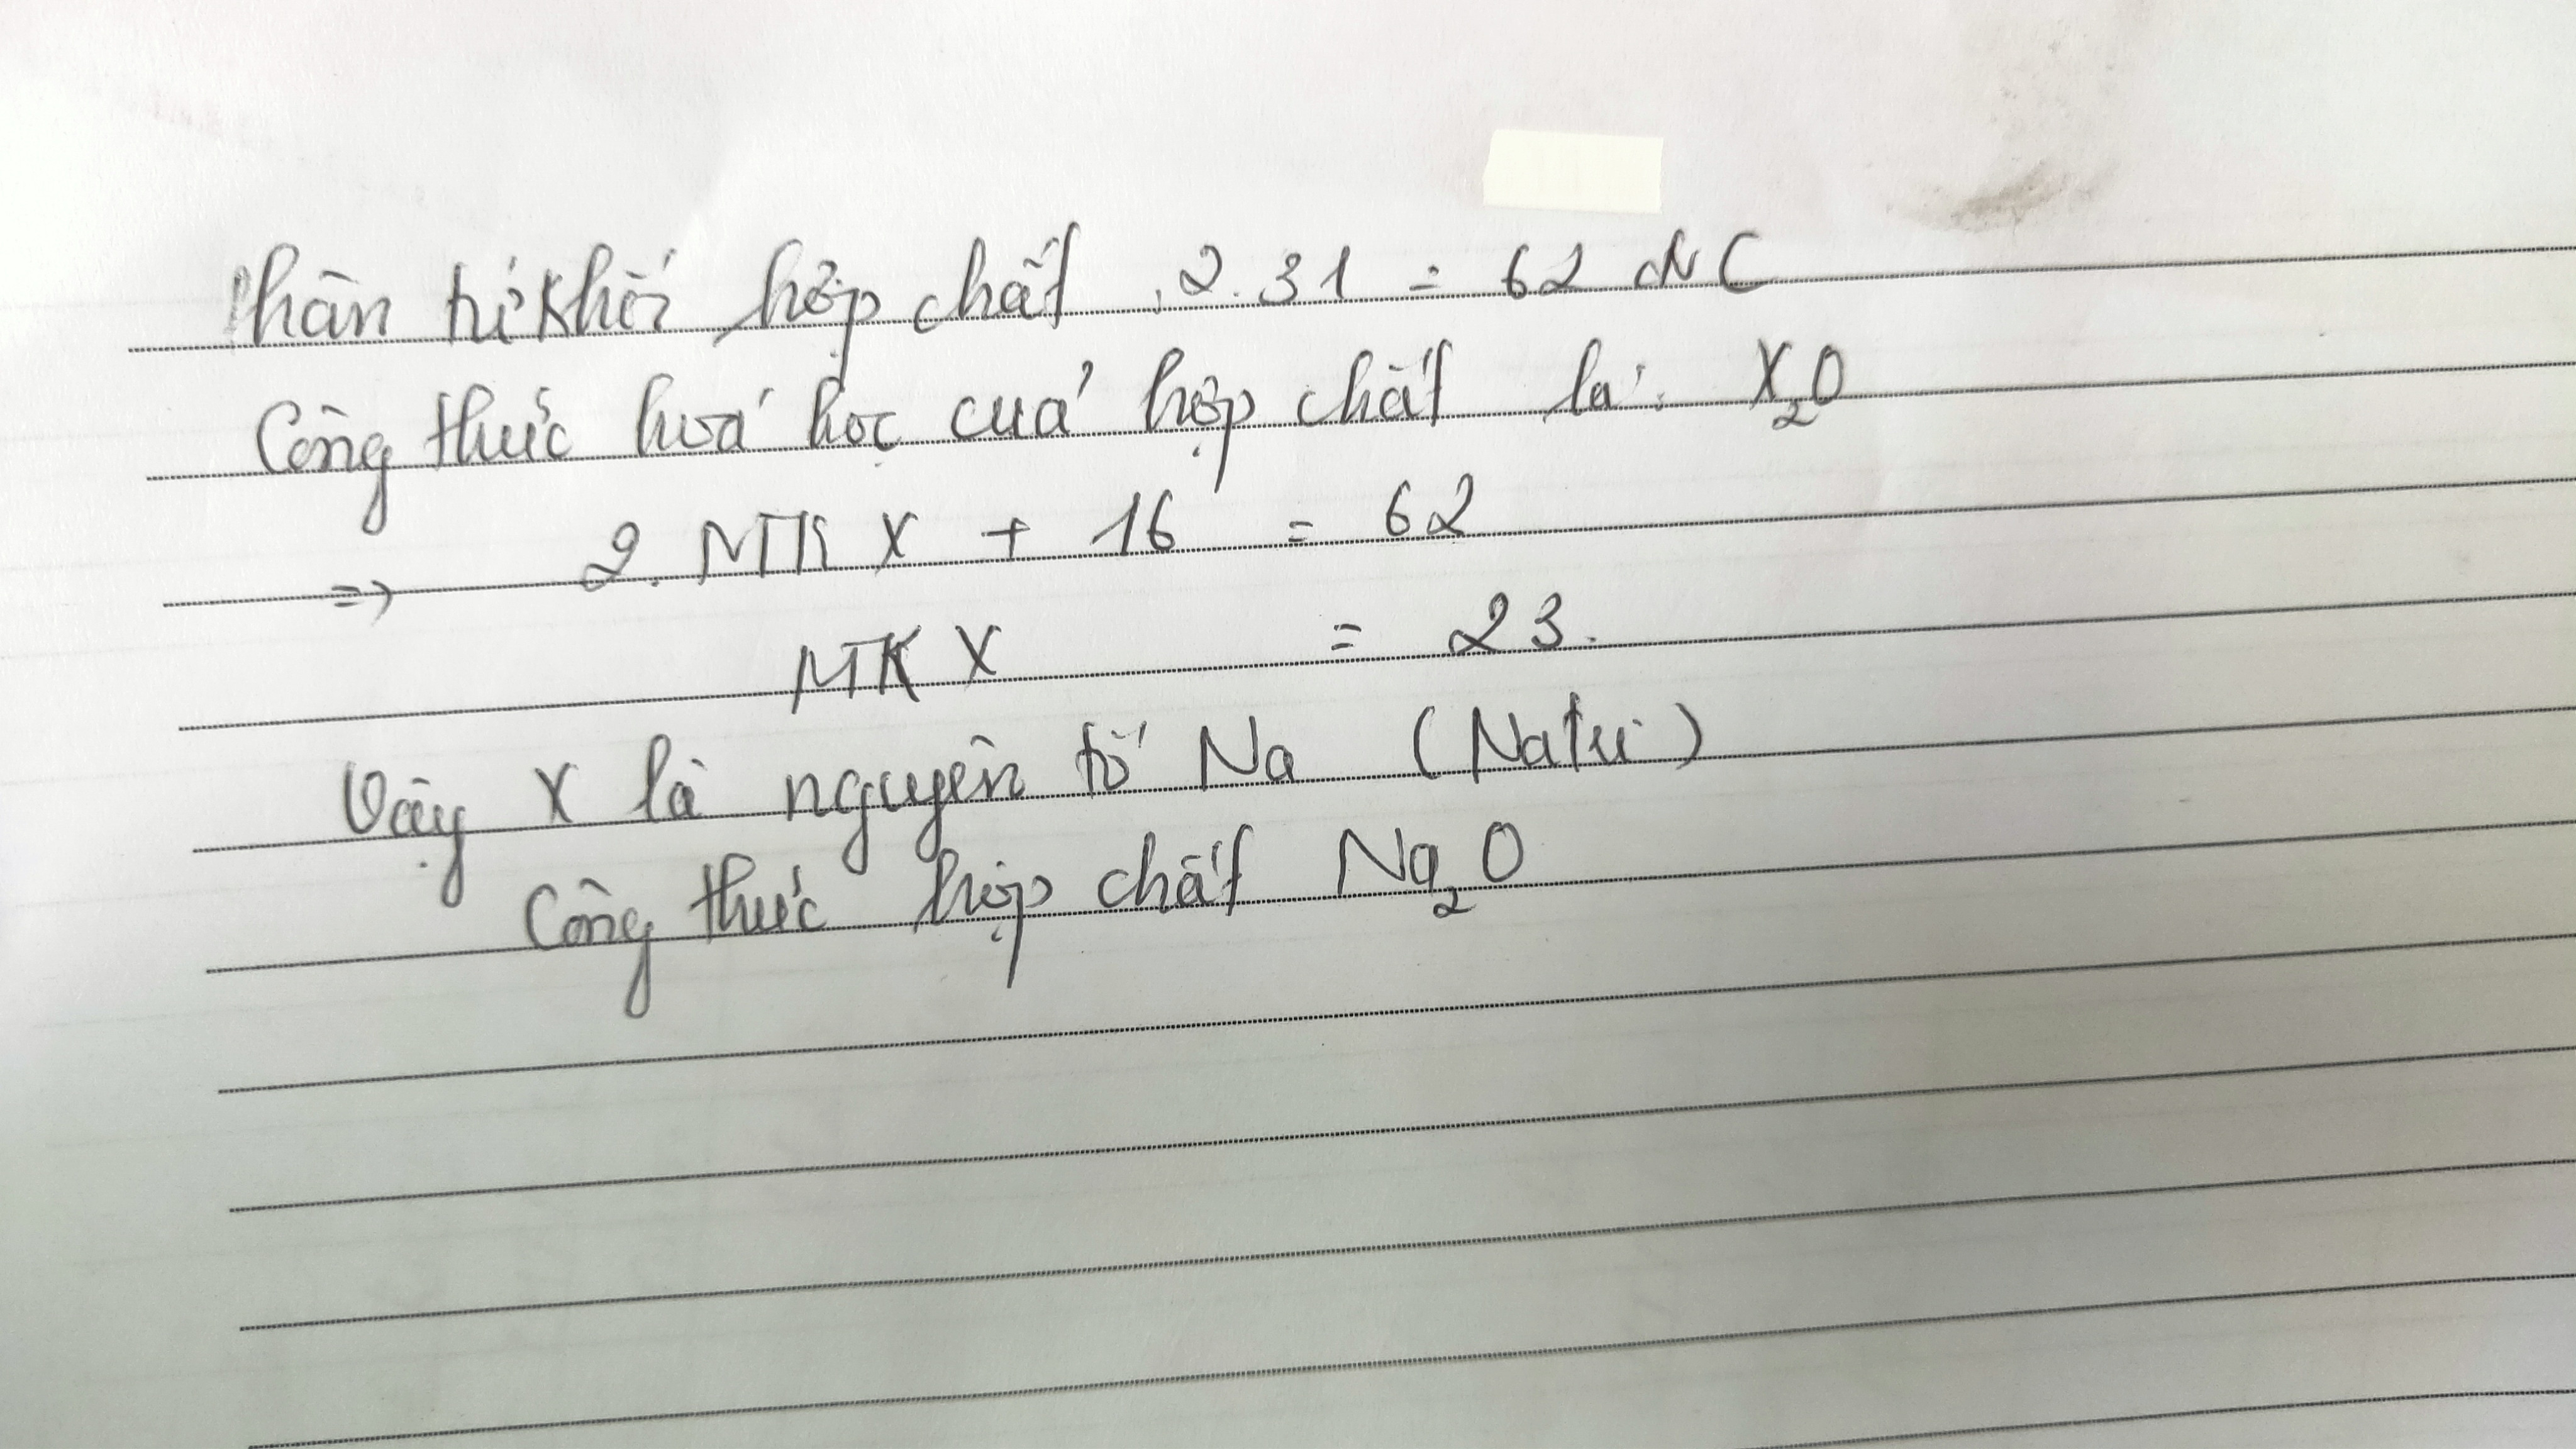 Phân tử khối hợp chất : 2.31 = 62 đvC
Công thức hoá học của hợp chất là: X₂O
=> 2. NTK X + 16 = 62
NTK X = 23.
Vậy X là nguyên tố Na (Natri)
Công thức hợp chất Na₂O